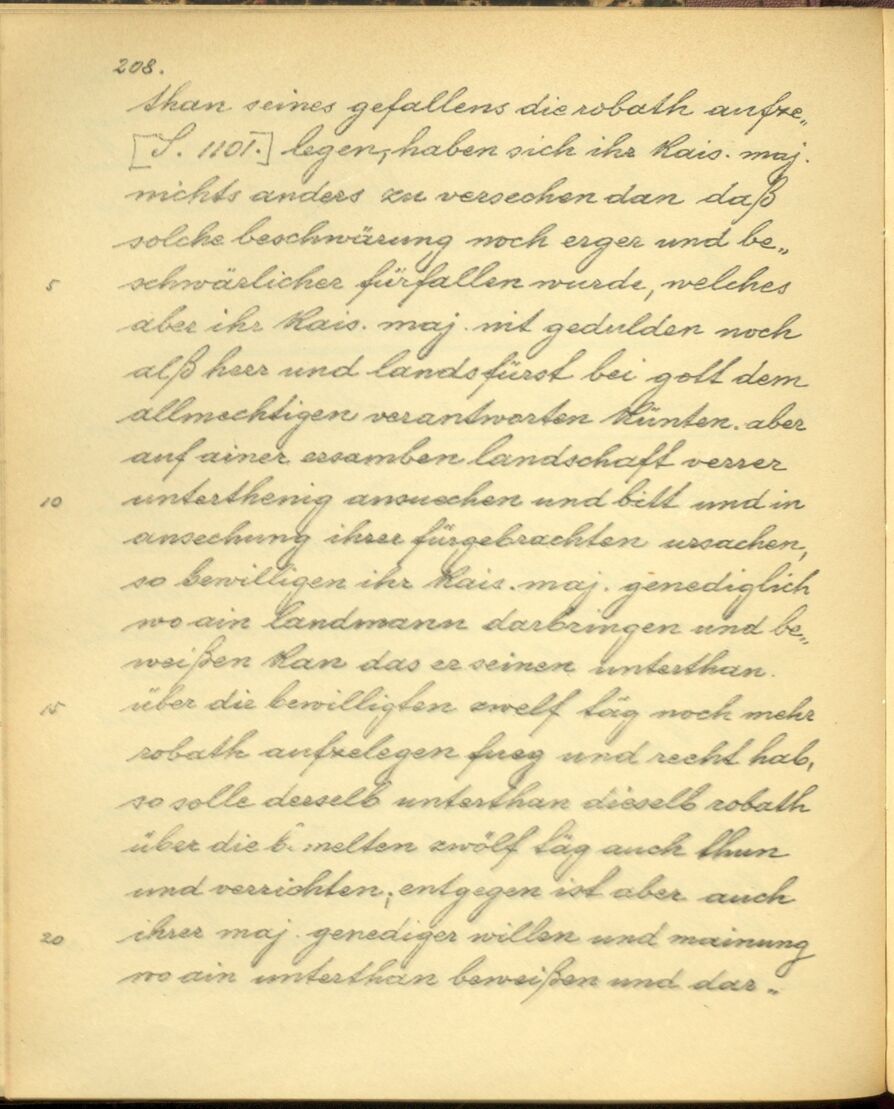 208.
than seines gefallens die robath aufze„
[S. 1101.] legen, haben sich ihr Kais. maj.
nichts anders zu versechen dan daß
solche beschwärung noch erger und be„
5 schwärlicher fürfallen wurde, welches
aber ihr Kais. maj. nit gedulden noch
alß herr und landsfürst bei gott dem
allmechtigen verantworten künten. aber
auf ainer ersamben landschaft verrer
10 unterthenig ansuechen und bitt und in
ansechung ihrer fürgebrachten ursachen,
so bewilligen ihr Kais. maj. genediglich
wo ain landmann darbringen und be„
weißen kan das er seinen unterthan
15 über die bewilligten zwelf täg noch mehr
robath aufzelegen fueg und recht hab,
so solle derselb unterthan dieselb robath
über die b. melten zwölf täg auch thun
und verrichten; entgegen ist aber auch
20 ihrer maj. genediger willen und mainung
wo ain unterthan beweißen und dar„